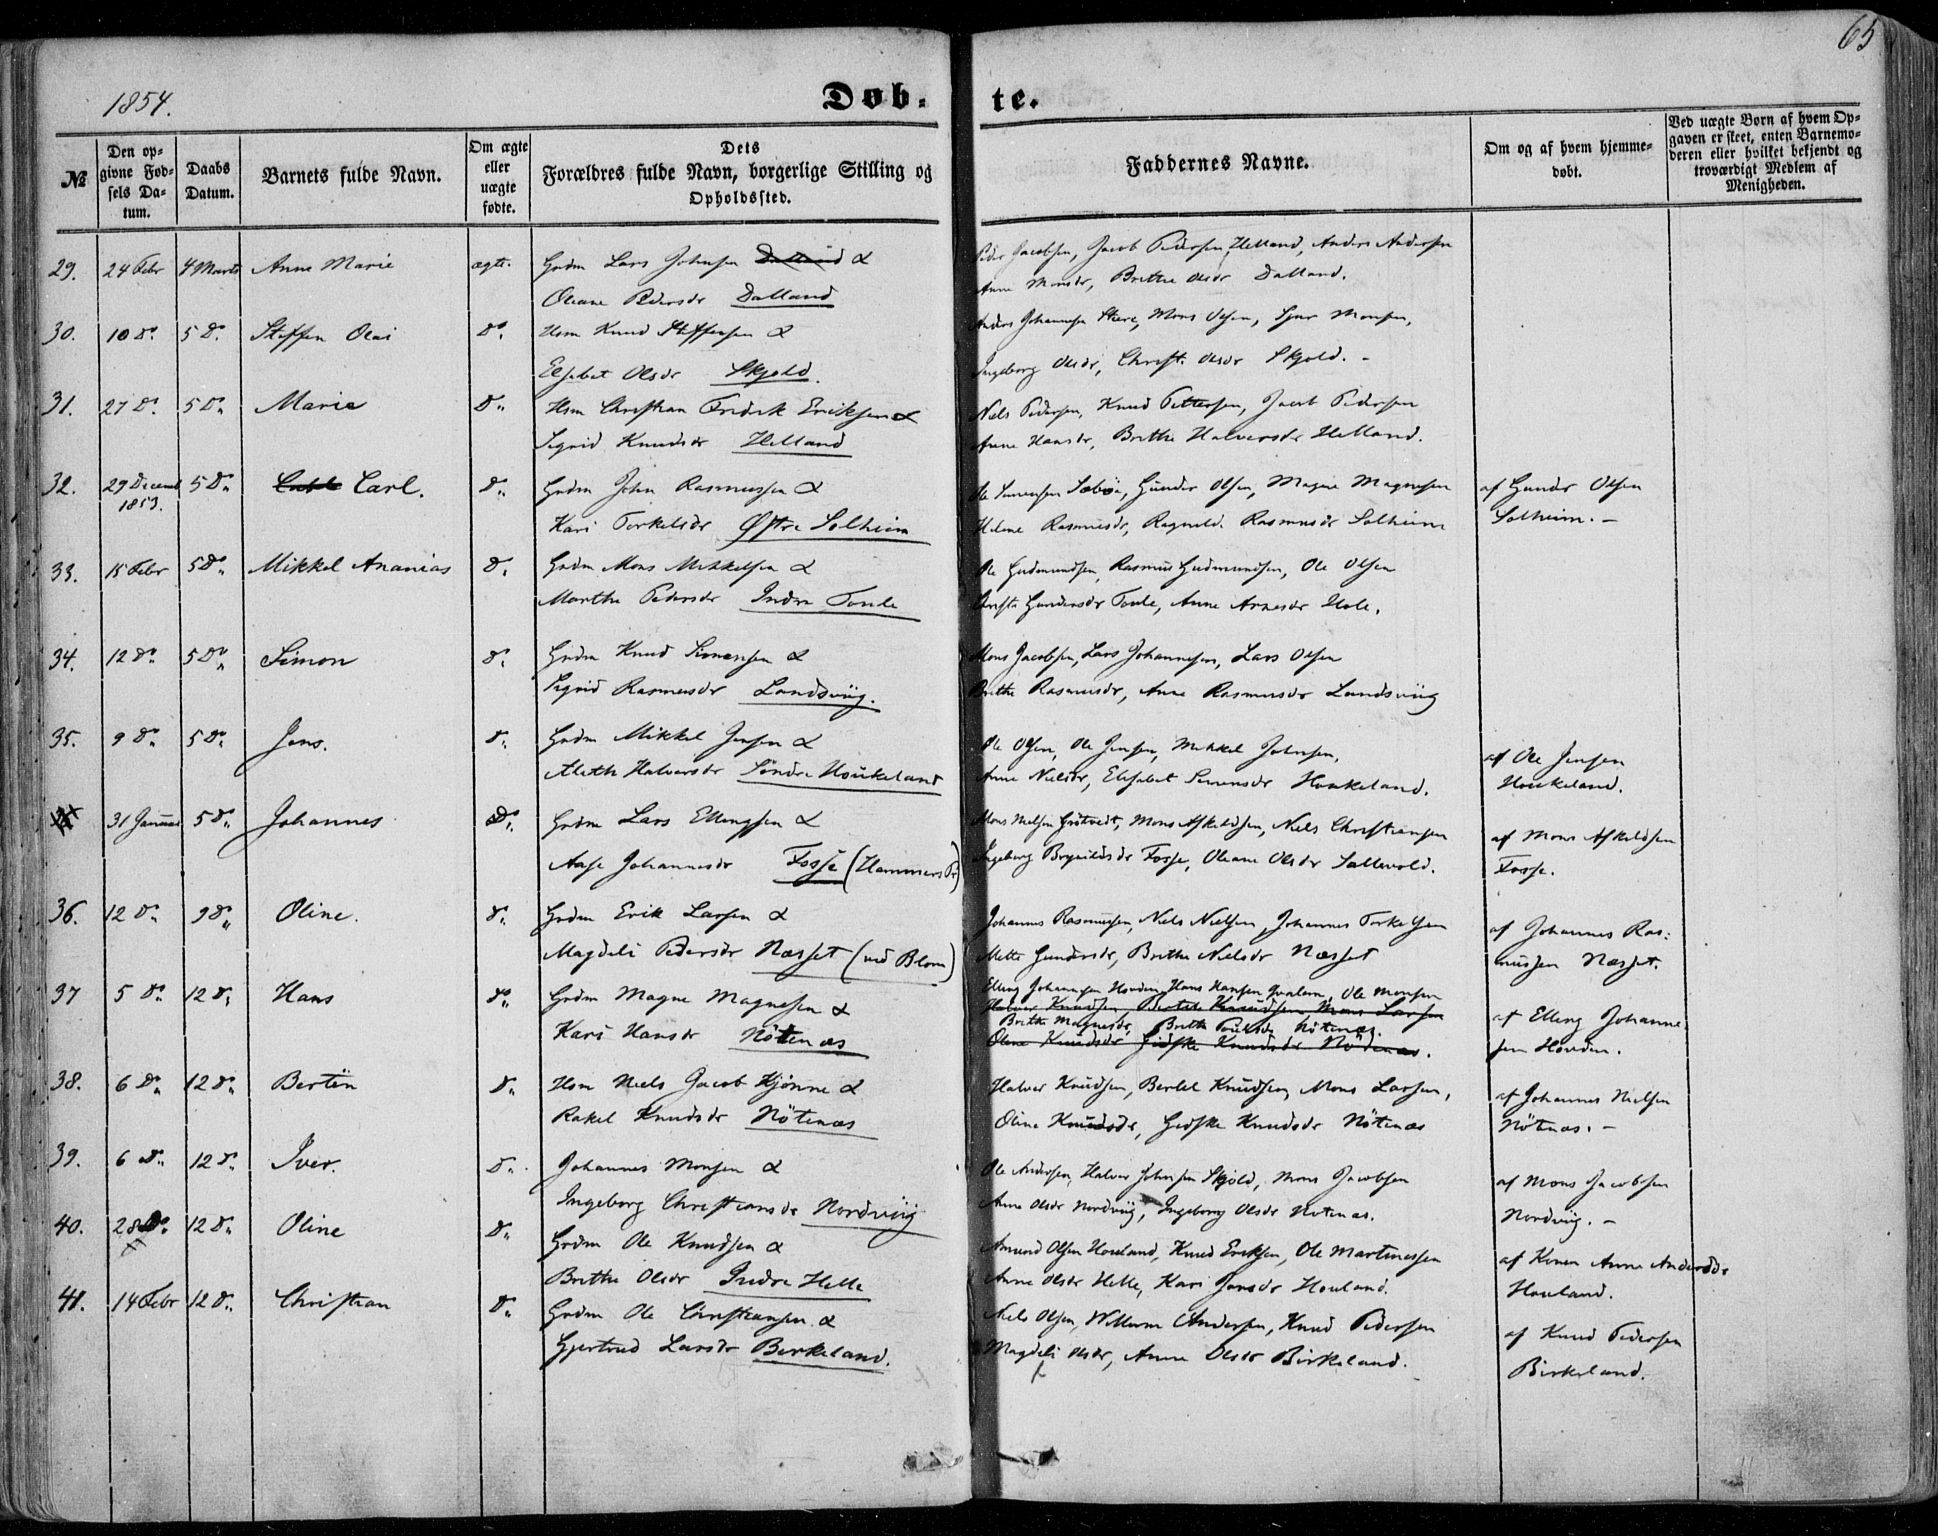 65
1854.
Døb-
te.
№
Den op-
givne Fød-
sels Da-
tum.
Daabs
Datum.
Barnets fulde Navn.
Om ægte
eller
uægte
fødte.
Dets
Forældres fulde Navn, borgerlige Stilling og
Opholdssted.
Faddernes Navne.
Om og af hvem hjemme-
døbt.
Ved uægte Børn af hvem Op-
gaven er skeet, enten Barnemo-
deren eller hvilket bekjendt og
troværdigt Medlem af
Menigheden.
29. 24 Febr 4 Marts Anne Marie ægte. Grdm Lars Johnsen Dalland &
Oleane Pedersdr Dalland
Peder Jacobsen, Jacob Pedersen Helland, Anders Andersen
Anne Monsdr, Brithe Olsdr Dalland.
30. 10 do. 5 do. Steffen Olai do. Hsm Knud Steffensen &
Elsebet Olsdr Skjold.
Anders Johannesen Skere, Mons Olsen, Sjur Monsen,
Ingeborg Olsdr, Christ. Olsdr Skjold. -
31. 27 do. 5 do. Marie do. Hsm Christian Fredrik Eriksen &
Sigrid Knudsdr Helland
Niels Pedersen, Knud Pettersen, Jacob Pedersen
Anne Hansdr, Brithe Halversdr Helland.
32. 29 Decemb 5 do. Carl. do. Grdm John Rasmussen &
1853.
Kari Torkelsdr Østre Solheim
Ole Simensen Sæbøe, Gunder Olsen, Magne Magnesen
Helene Rasmusdr, Ragnild Rasmusdr Solheim
af Gunder Olsen
Solheim. -
33. 15 Febr 5 do. Mikkel Ananias do. Grdm Mons Mikkelsen &
Marthe Pedersdr Indre Toule
Ole Gudmundsen, Rasmus Gudmundsen, Ole Olsen
Christi Gundersdr Toule, Anne Arnesdr Hole.
34. 12 do. 5 do. Simon do. Grdm Knud Simensen &
Sigrid Rasmusdr Landsviig.
Mons Jacobsen, Lars Johannesen, Lars Olsen
Brithe Rasmusdr, Anne Rasmusdr Landsviig
35. 9 do. 5 do. Jens. do. Grdm Mikkel Jensen &
Alethe Halversdr Söndre Houkeland
Ole Olsen, Ole Jensen, Mikkel Johnsen,
Anne Nielsdr, Elisabet Simensdr Houkeland.
af Ole Jensen
Houkeland.
31 Januar 5 do. Johannes do. Grdm Lars Ellingsen &
Aase Johannesdr Fosse (Hammers Pr)
Mons Nielsen Grötvedt, Mons Askeldsen, Niels Christiansen
Ingeborg Brynildsdr Fosse, Oleane Olsdr Sallevold.
af Mons Askeldsen
Fosse.
36. 12 do. 9 do. Oline. do. Grdm Erik Larsen &
Magdeli Pedersdr Næsset (ved Blom)
Johannes Rasmussen, Niels Nielsen, Johannes Torkelsen
Mette Gundersdr, Brithe Nielsdr Næsset
af Johannes Ras:
mussen Næsset.
37 5 do. 12 do. Hans do. Grdm Magne Magnesen &
Kari Hansdr Nötenæs
Elling Johannesen Houden, Hans Hansen Qvalem, Ole Monsen
Halver Knudsen Bertel Knudsen Mons Larsen
Brithe Magnesdr, Brithe Poulsdr Nötenæs.
Oline Knudsdr Gidske Knudsdr Nötenæs.
af Elling Johanne-
sen Houden.
38. 6 do. 12 do. Bertin do. Hsm Niels Jacob Hjönne &
Rakel Knudsdr Nötenæs
Halver Knudsen, Bertel Knudsen, Mons Larsen,
Oline Knudsdr, Gidske Knudsdr Nötenæs
af Johannes Nielsen
Nötenæs. -
39. 6 do. 12 do. Iver. do. Johannes Monsen &
Ingeborg Christiansdr Nordviig
Ole Andersen, Halver Johnsen Skjold, Mons Jacobsen
Anne Olsdr Nordviig, Ingeborg Olsdr Notenæs.
af Mons Jacobsen
Nordviig. -
40. 28 do. 12 do. Oline do. Grdm Ole Knudsen &
Brithe Olsdr Indre Helle
Amund Olsen Houland, Knud Eriksen, Ole Martinessen
Anne Olsdr Helle, Kari Jonsdr Houland.
af Konen Anne Andersdr
Houland.
41. 14 Febr 12 do. Christian do. Grdm Ole Christiansen &
Gjertrud Larsdr Birkeland.
Niels Olsen, Willum Andersen, Knud Pedersen
Magdeli Olsdr, Anne Olsdr Birkeland.
af Knud Pedersen
Birkeland.